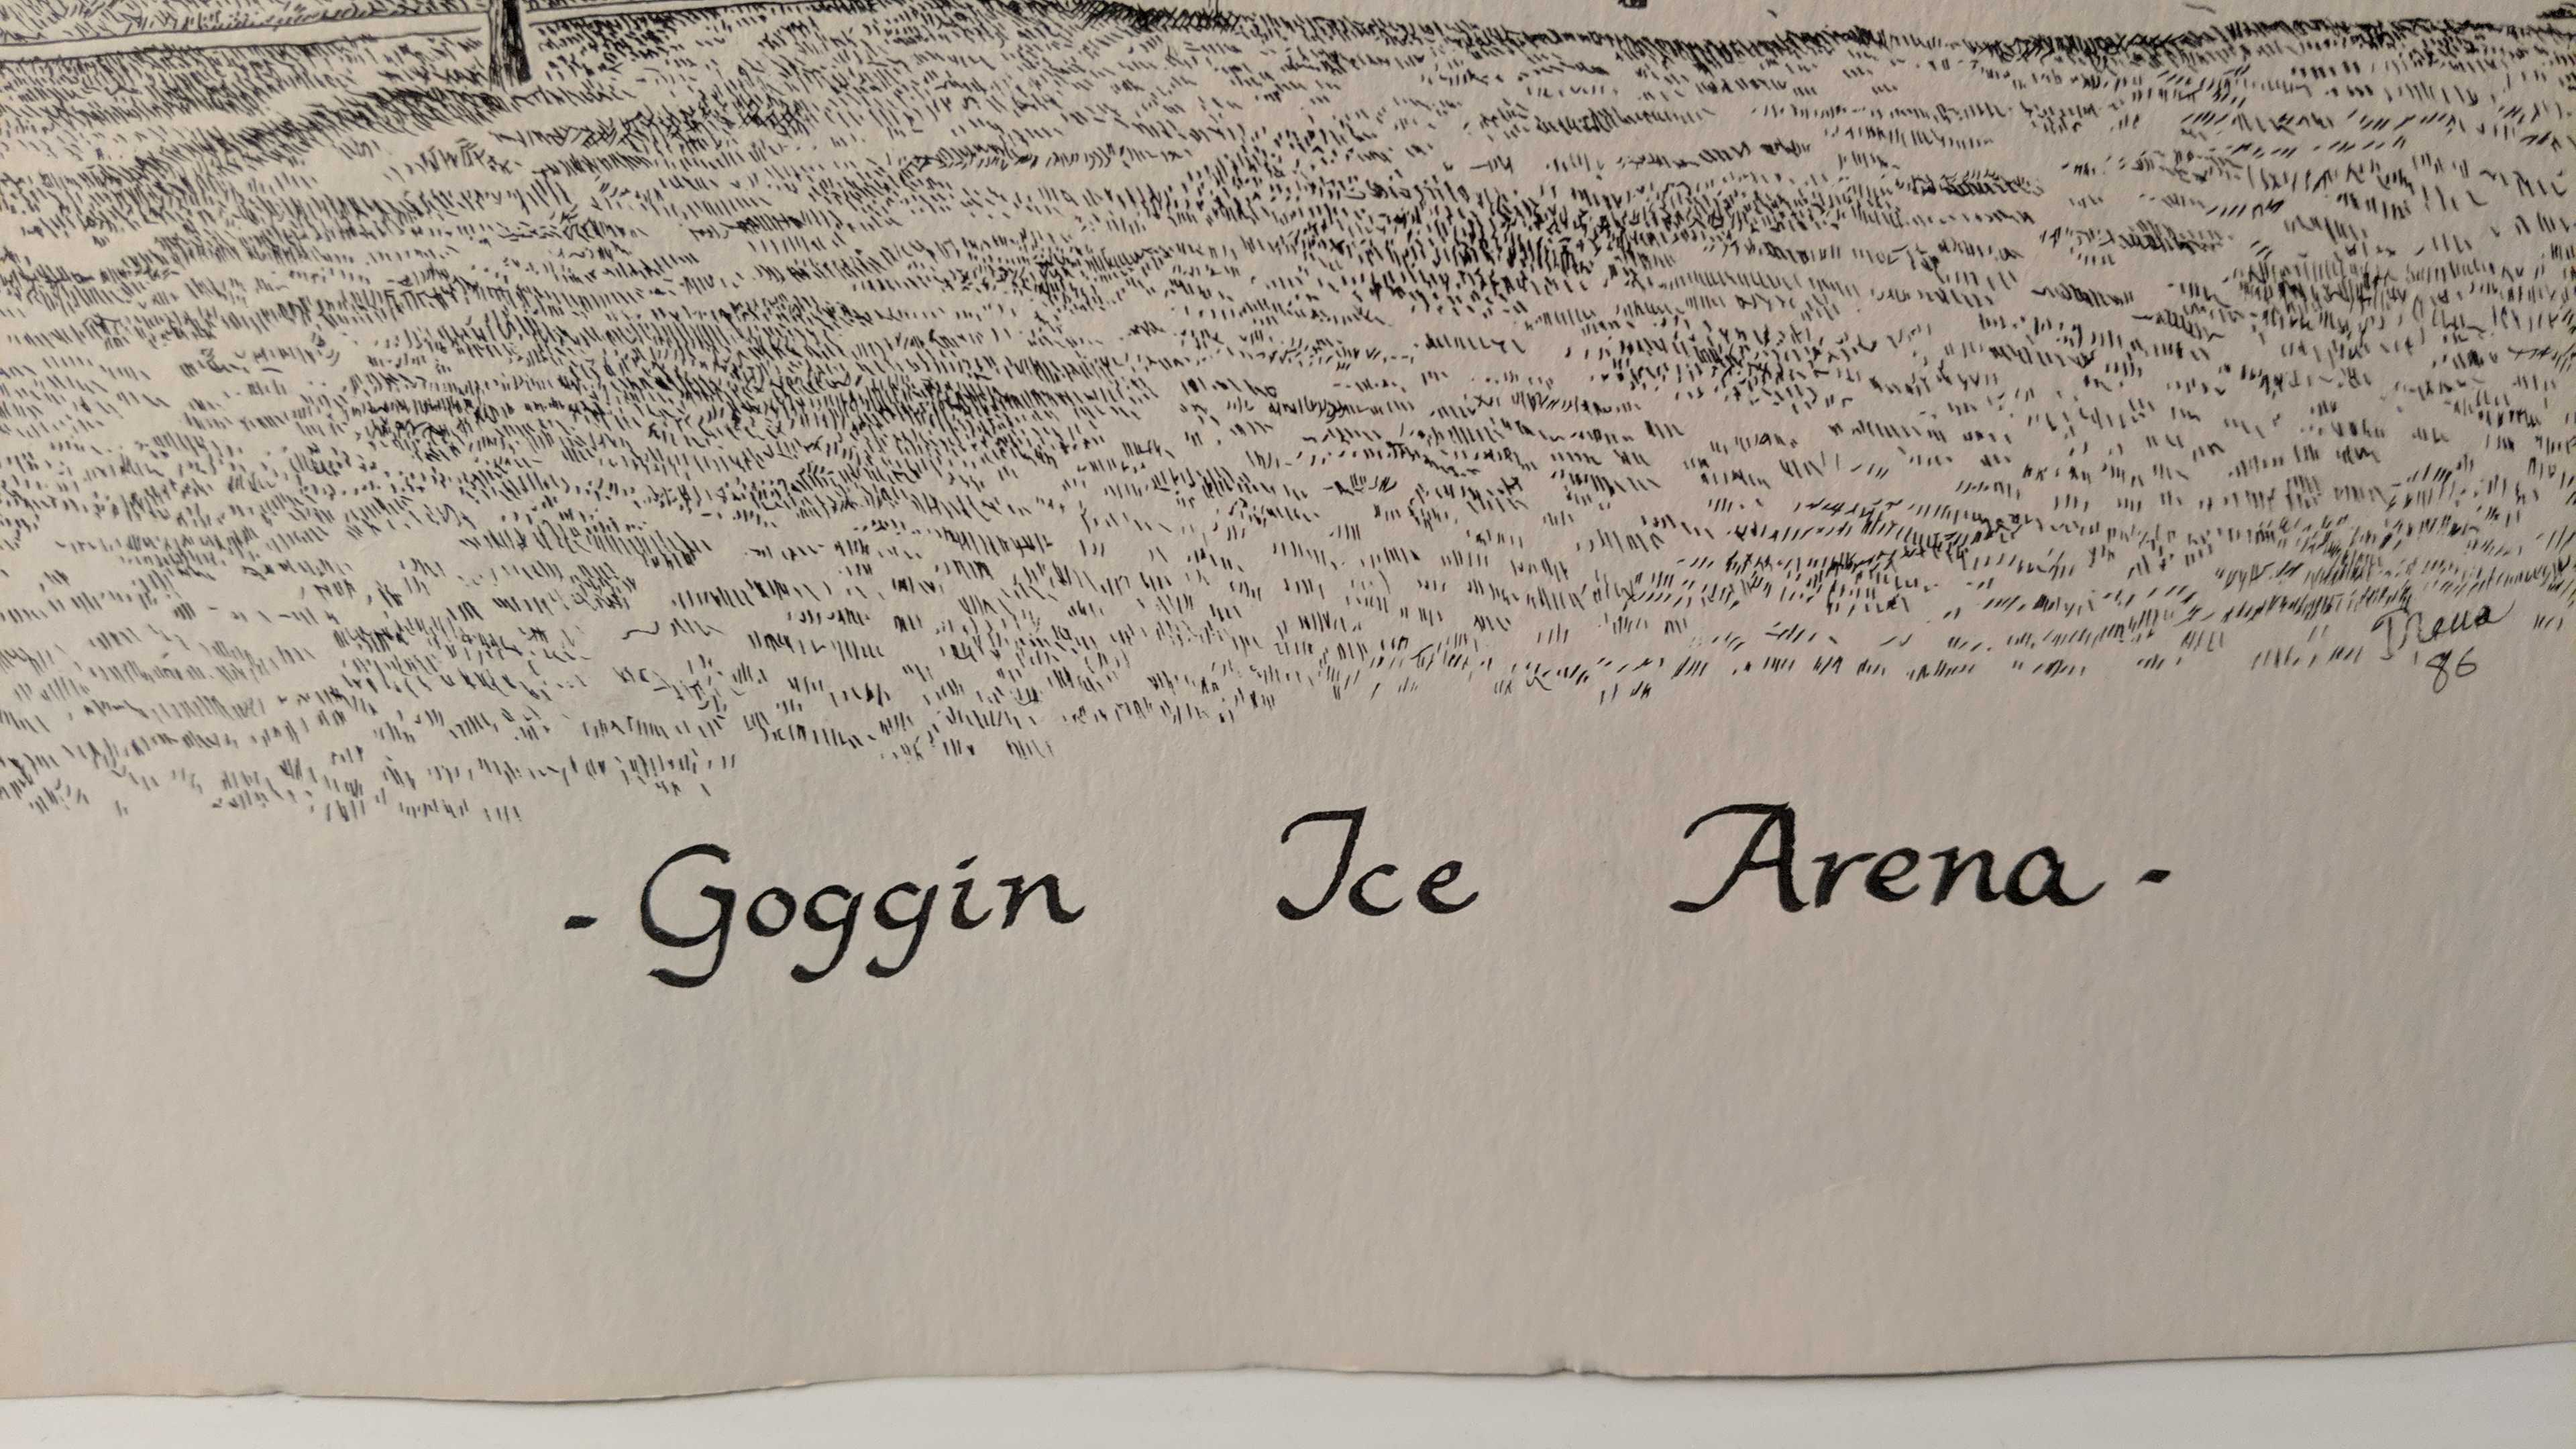 86
- Goggin Ice Arena -